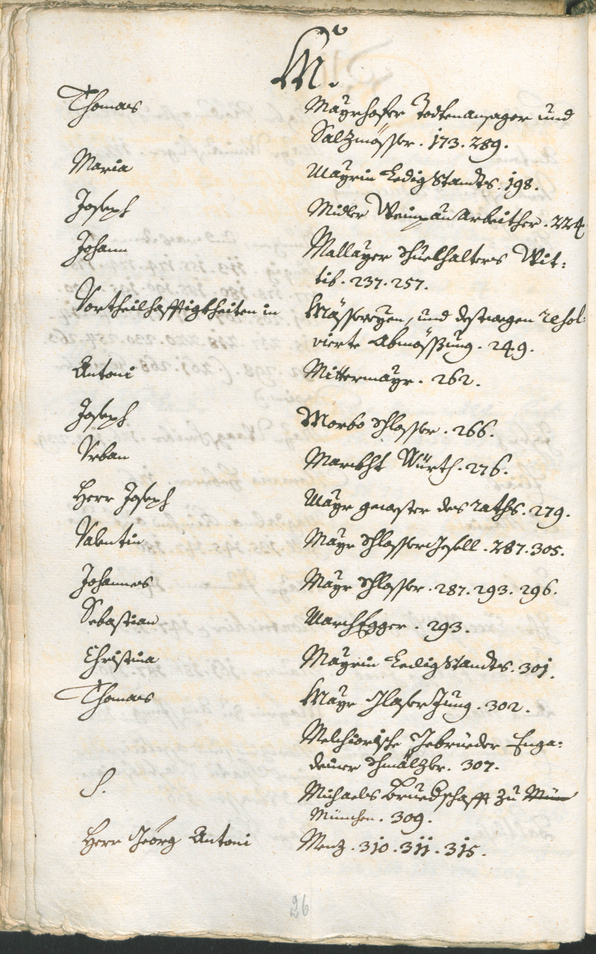 M.
Thomas Mayrhofer Todtenansager und
Salzmösser. 173. 289.
Maria Mayrin Ledig Standts. 198.
Joseph Miller Weinpau Arbeither. 224
Johann Mallayer Schuelhalters Wit:
tib. 237. 257.
Vortheilhafftigkheiten in Mässereyen, und destwegen resol:
vierte Abmössung. 249.
Antoni Mittermayr. 262.
Joseph Morbo Schlosser. 266.
Urban Marckht Würth. 276.
Herr Joseph Mayr gewester des raths. 279.
Valentin Mayr Schlosser Gesell. 287. 305.
Johannes Mayr Schlosser. 287. 293. 296.
Sebastian March Egger. 293.
Christina Mayrin Ledig Standts. 301.
Thomas Mayr Glaser Jung. 302.
Melchiorische Gebrüeder Enga:
deiner Schmälzbr. 307.
S. Michaels Bruedschafft zu Mün
München. 309.
Herr Geörg Antoni Menz. 310. 311. 315.
26